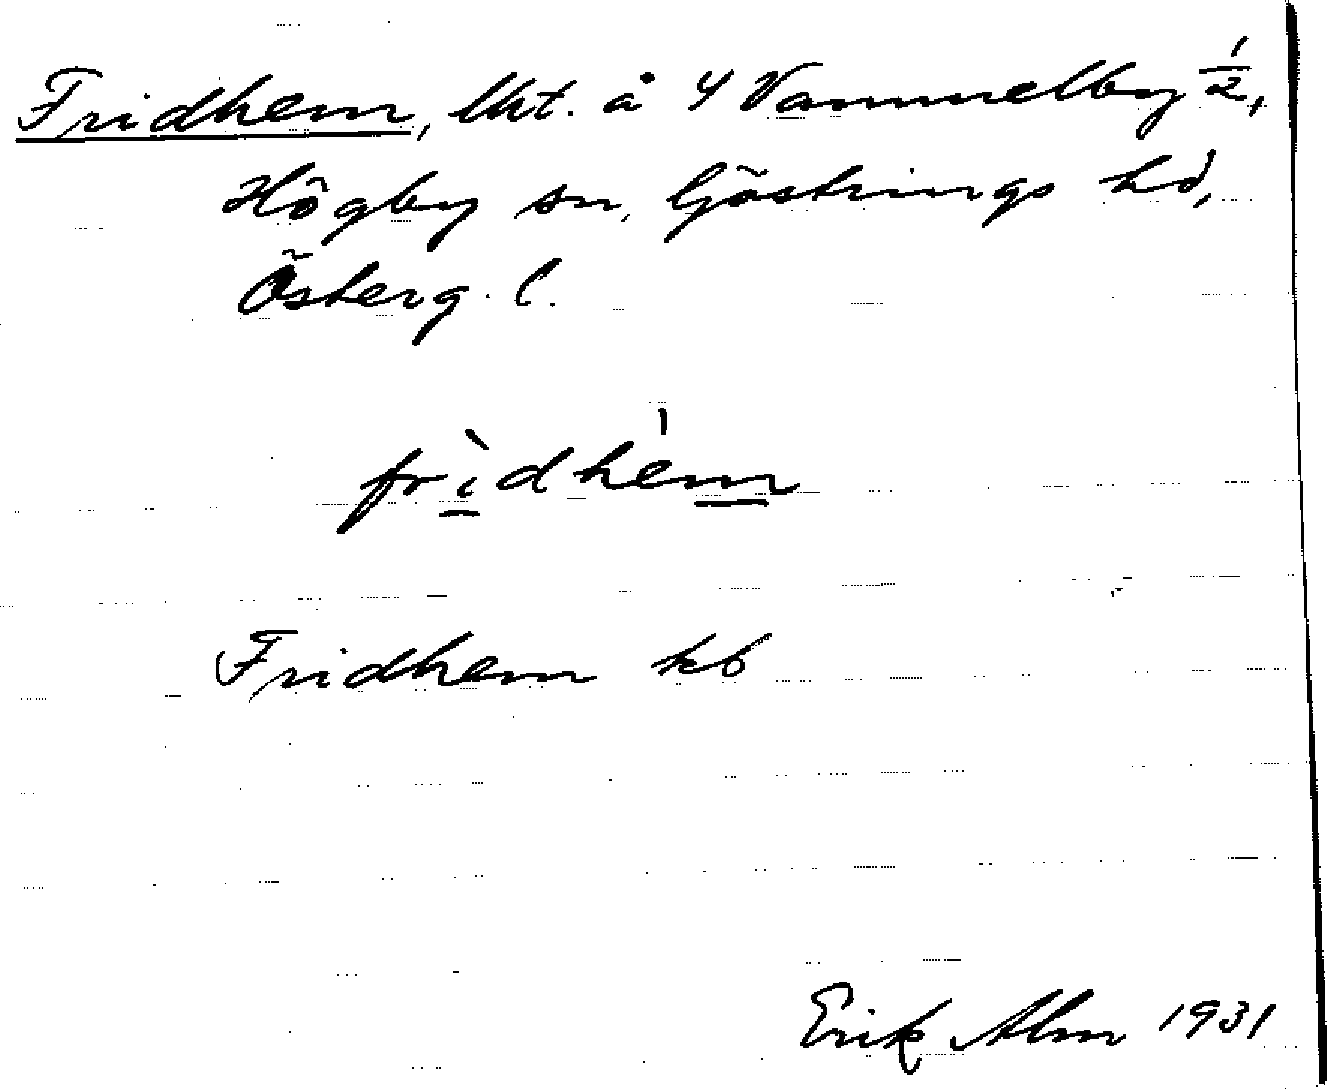 Fridhem, lht. å 4 Vammelby 1/2,
Högby sn, Göstrings hd,
Österg. l.
frìdhèm
Fridhem kb
Erik Alm 1931